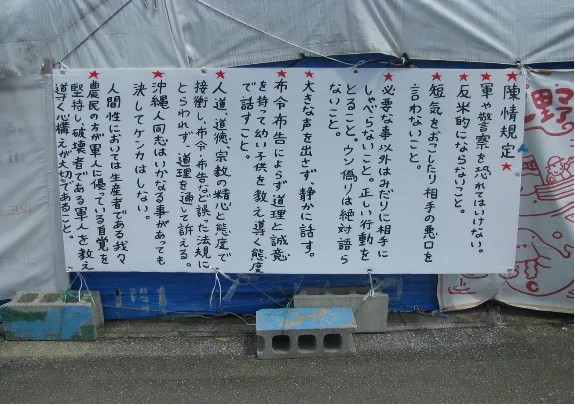 ★陳情規定★
★軍や警察を恐れてはいけない。
★反米的にならないこと。
★短気をおこしたり相手の悪口を
言わないこと。
★必要な事以外はみだりに相手に
しゃべらないこと。正しい行動を
とること。ウソ偽りは絶対語ら
ないこと。
★大きな声を出さず、静かに話す。
★布令・布告によらず道理と誠意
を持って幼い子供を教え導く態度
で話すこと。
★人道、道徳、宗教の精心と態度で
接衝し、布令・布告など誤った法規に
とらわれず、道理を通して訴える。
★沖縄人同志はいかなる事があっても
決してケンカはしない。
人間性においては生産者である我々
★農民の方が軍人に優っている自覚を
堅持し、破壊者である軍人を教え
導く心構えが大切であること。